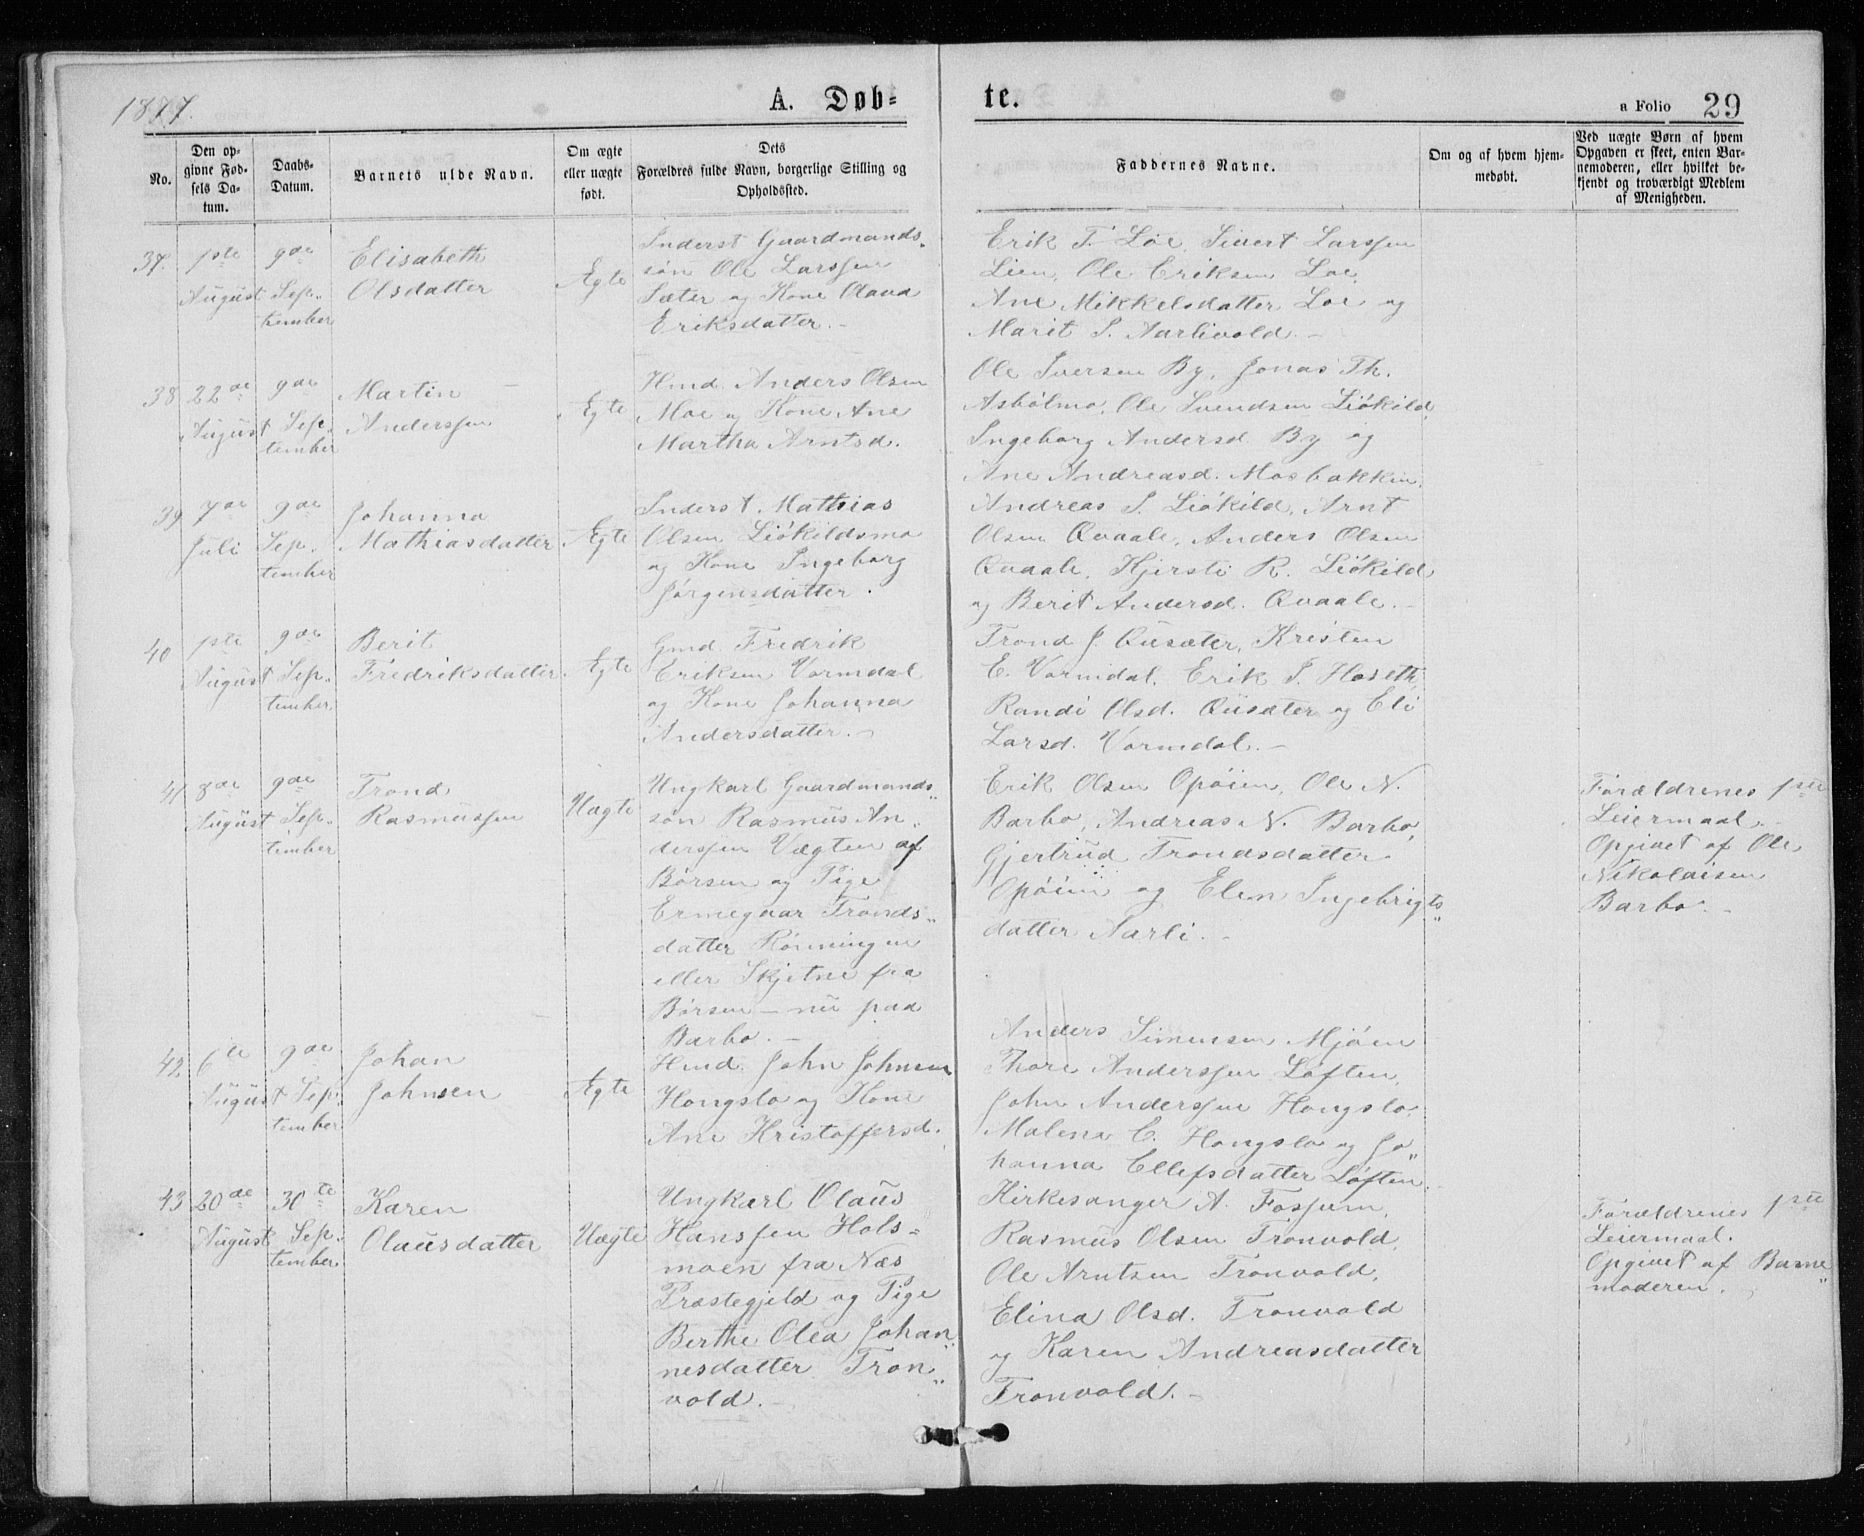 1877.
A. Døb-
te.
a Folio 29
No.
Den op-
givne Fød-
sels Da-
tum.
Daabs-
Datum.
Barnets ulde Navn.
Om ægte
eller uægte
født.
Dets
Forældres fulde Navn, borgerlige Stilling og
Opholdssted.
Faddernes Navne.
Om og af hvem hjem-
medøbt.
Ved uægte Børn af hvem
Opgaven er skeet, enten Bar-
nemoderen, eller hvilket be-
kjendt og troværdigt Medlem
af Menigheden.
37.
1ste
August
9de
Sep-
tember
Elisabeth
Olsdatter
Ægte
Inderst Gaardmands-
søn Ole Larssen
Sæter og Kone Olava
Eriksdatter.
Erik T. Løe, Sivert Larssen
Lien, Ole Eriksen Loe,
Ane Mikkelsdatter Loe og
Marit S. Aarlivold.
38
22de
August
9de
Sep-
tember
Martin
Anderssen
Ægte
Hmd. Anders Olsen
Moe og Kone Ane
Martha Arntsd.
Ole Iversen By, Jonas Th.
Asbølmo, Ole Svendsen Liøkild,
Ingeborg Andersd. By og
Ane Andreasd. Mosbakken.
39
7de
Juli
9de
Sep-
tember
Johanna
Mathiasdatter
Ægte
Inderst Mathias
Olsen Liøkildsmo
og Kone Ingeborg
Jørgensdatter.
Andreas S. Liøkild, Arnt
Olsen Qvaale, Anders Olsen
Qvaale, Kjersti R. Liøkild
og Berit Andersd. Qvaale.
40
1ste
August
9de
Sep-
tember
Berit
Fredriksdatter
Ægte
Gmd Fredrik
Eriksen Vormdal
og Kone Johanna
Andersdatter.
Trond J. Qusæter, Kristen
E. Vormdal, Erik J. Hoseth,
Randi Olsd. Qusæter og Eli
Larsd. Vormdal.
41
8de
August
9de
Sep-
tember
Trond
Rasmussen
Uægte
Ungkarl Gaardmands-
søn Rasmus An-
derssen Vægten af
Børsen og Pige
Ermegaar Tronds-
datter Rønningen
eller Skjetne fra
Børsen - nu paa
Barbo.
Erik Olsen Opøien, Ole N.
Barbo, Andreas N. Barbo,
Gjertrud Trondsdatter
Opøien og Elen Ingebrigts-
datter Aarli.
Forældrenes 1ste
Leiermaal.
Opgivet af Ole
Nikolaisen
Barbo.
42
6te
August
9de
Sep-
tember
Johan
Johnsen
Ægte
Hmd. John Johnsen
Hongslo og Kone
Ane Kristoffersd.
Anders Simensen Mjøen
Thore Anderssen Løften,
John Anderssen Hongslo,
Malena C. Hongslo og Jo-
hanna Ellefsdatter Løften.
43
20de
August
30te
Sep-
tember
Karen
Olausdatter
Uægte
Ungkarl Olaus
Hanssen Hols-
moen fra Næs
Præstegjeld og Pige
Berthe Olea Johan-
nesdatter Tron-
vold.
Kirkesanger A. Fossum,
Rasmus Olsen Tronvold,
Ole Arntsen Tronvold,
Elina Olsd. Tronvold
og Karen Andreasdatter
Tronvold.
Forældrenes 1ste
Leiermaal.
Opgivet af Barne-
moderen.